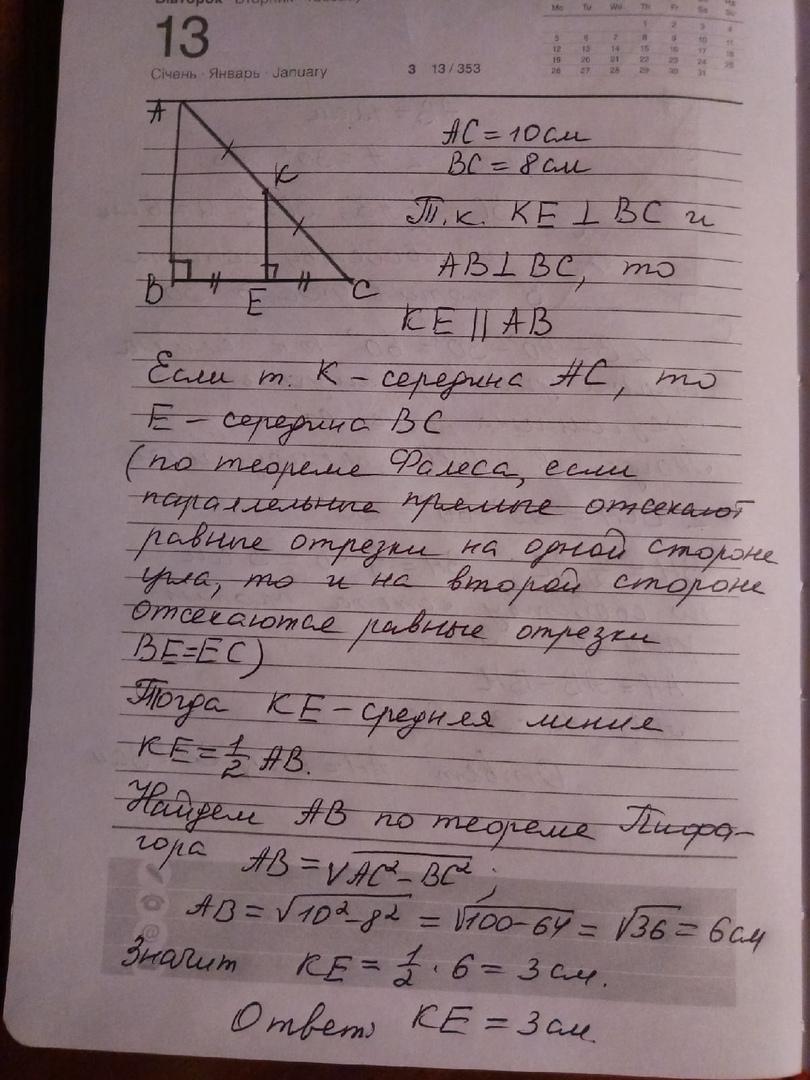 Вівторок · Вторник · Tuesday
13
Січень · Январь · January
3 13/353
Mo Tu We Th Fr Sa Su
1 2 3 4
5 6 7 8 9 10 11
12 13 14 15 16 17 18
19 20 21 22 23 24 25
26 27 28 29 30 31
A
K
B
E
C
AC = 10 см
BC = 8 см
Т.к. KE ⊥ BC и
AB ⊥ BC, то
KE || AB
Если т. K – середина AC, то
E – середина BC
(по теореме Фалеса, если
параллельные прямые отсекают
равные отрезки на одной стороне
угла, то и на второй стороне
отсекаются равные отрезки
BE=EC)
Тогда KE – средняя линия
KE = 1/2 AB.
Найдем AB по теореме Пифа-
гора AB = √(AC² – BC²) ;
AB = √(10² – 8²) = √(100-64) = √36 = 6 см
Значит KE = 1/2 · 6 = 3 см.
Ответ: KE = 3 см.